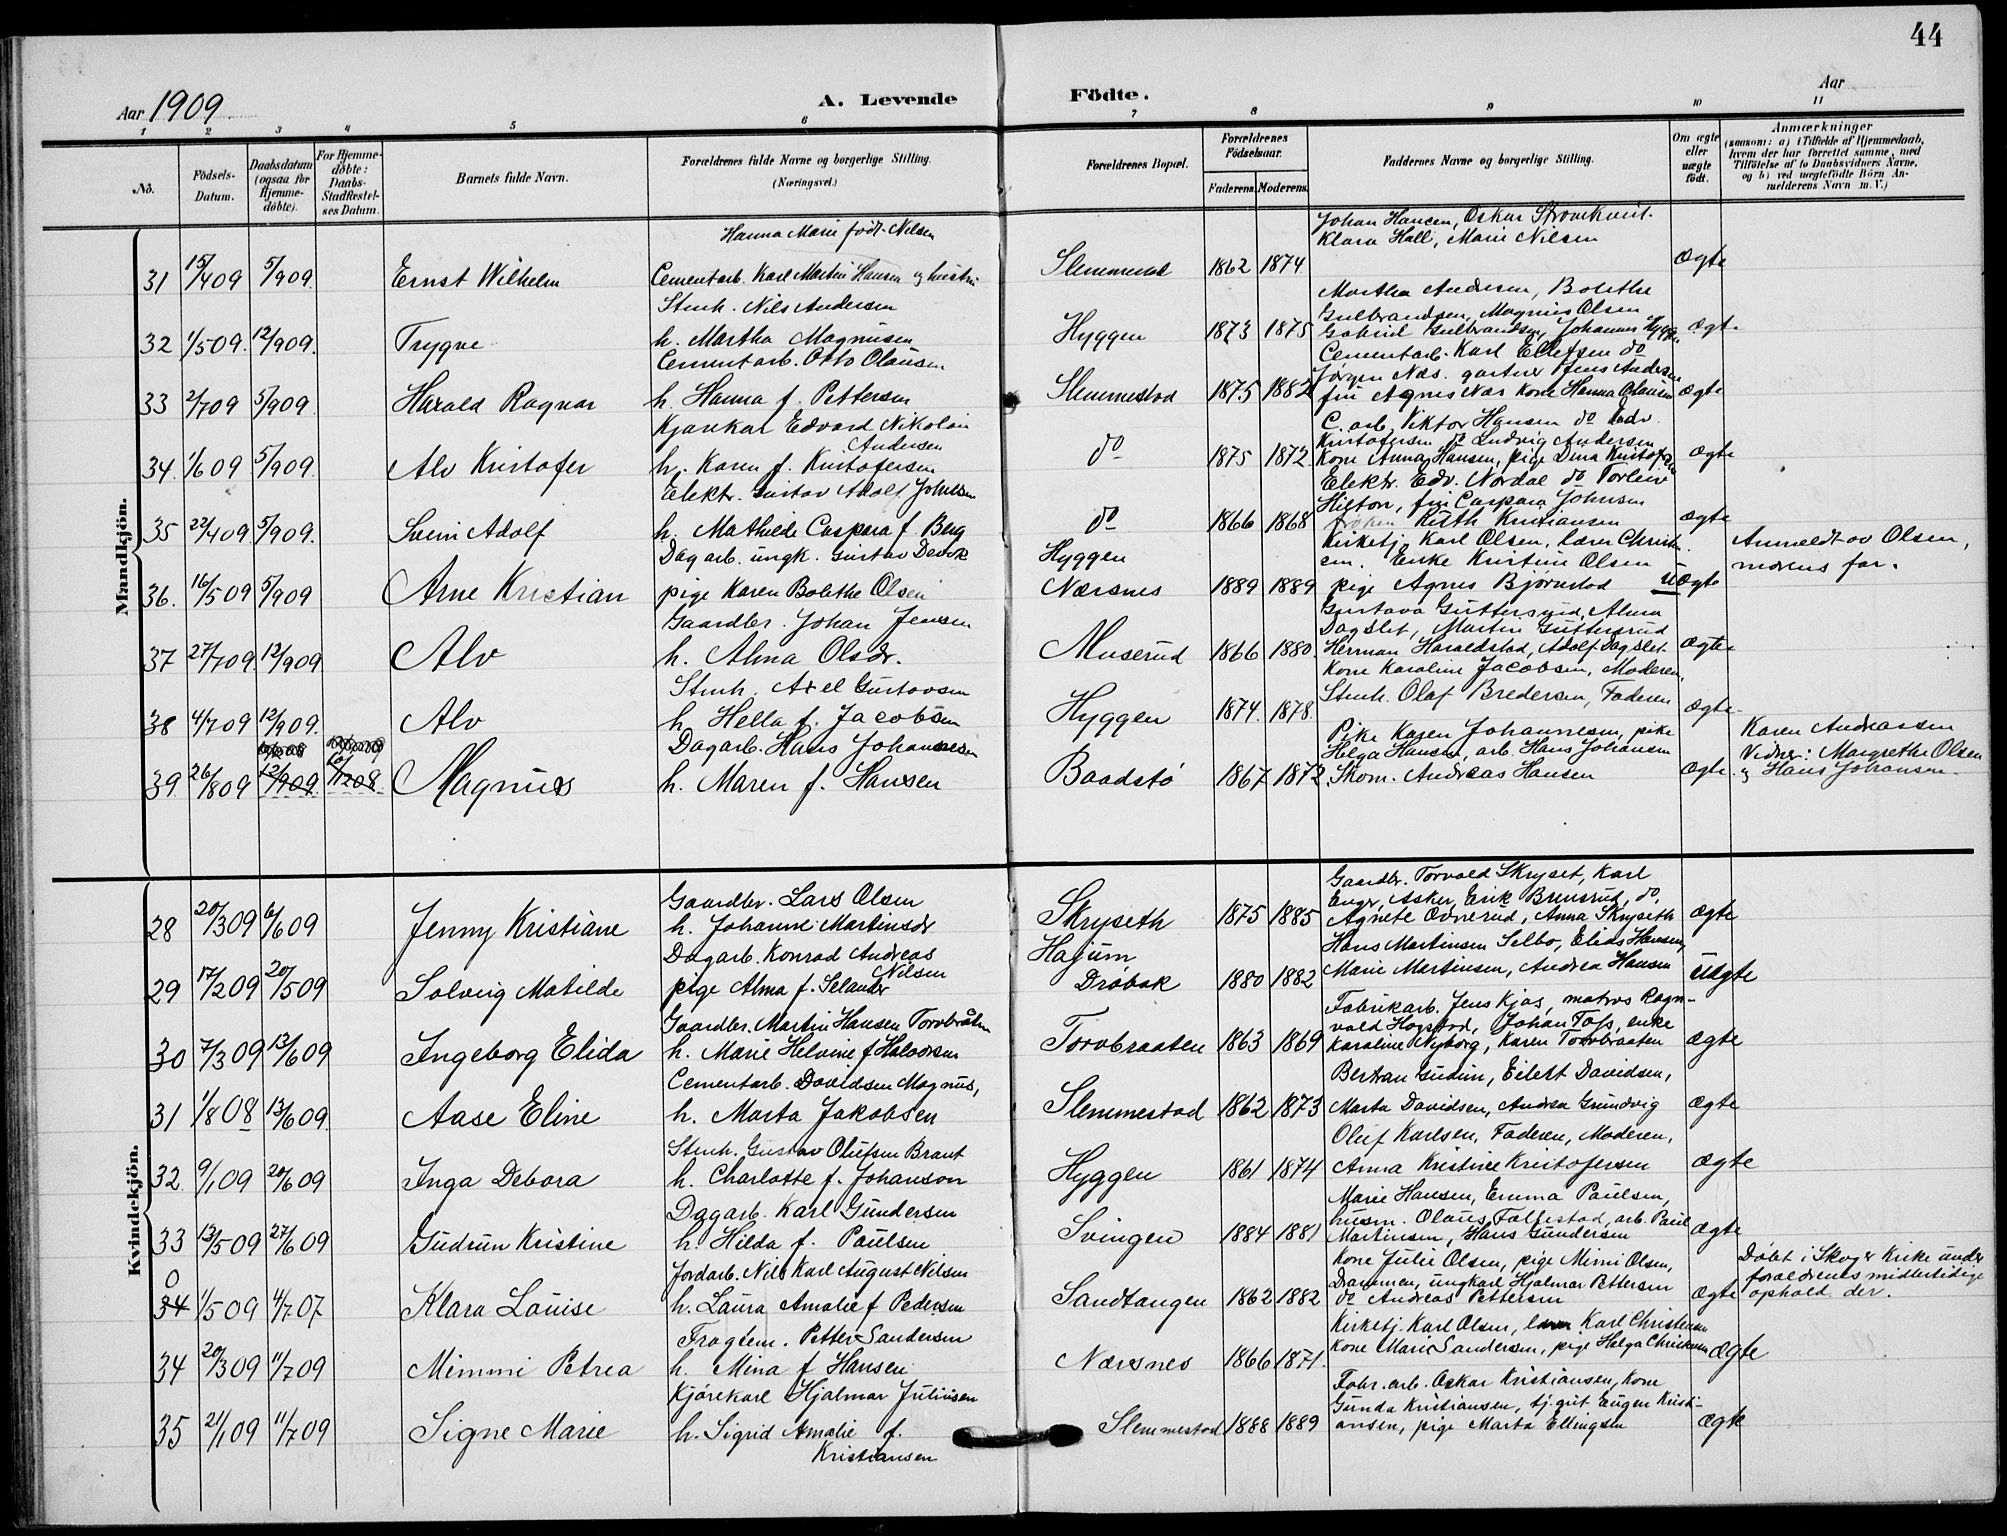 44
Aar 1909
A. Levende Födte.
Aar
1 2 3 4 5 6 7 8 9 10 11
No.
Födsels-Datum.
Daabsdatum (ogsaa for Hjemme-döbte).
For Hjemme-döbte: Daabs-Stadfestel-ses Datum.
Barnets fulde Navn.
Forældrenes fulde Navne og borgerlige Stilling. (Næringsvei.)
Forældrenes Bopæl.
Forældrenes Födselsaar.
Faderens. Moderens.
Faddernes Navne og borgerlige Stilling.
Om ægte eller uægte födt.
Anmærkninger
(saasom: a) i Tilfælde af Hjemmedaab, hvem der har forrettet samme, med Tilföielse af to Daabsvidners Navne, og b) ved uægtefödte Börn An-melderens Navn m. V.)
Mandkjön.
Hanna Marie födt Nilsen
Johan Hansen, Oskar Stromkvist.
Klara Hall, Marie Nilsen
31 15/4 09 5/9 09. Ernst Wilhelm Cementarb. Karl Martin Hansen og hustru Slemmestad 1862 1874 ægte
Stenh. Nils Andersen
Martha Andersen, Bolethe
Gulbrandsen, Magnus Olsen
32 1/5 09. 12/9 09. Trygve h. Martha Magnusen Hyggen 1873 1875 Gabriel Gulbrandsen, Johannes Hyggen ægte
Cementarb. Otto Olausen
Cementarb. Karl Ellefsen do
Jörgen Næs. gartner Jens Andersen
33 2/7 09 5/9 09. Harald Ragnar h. Hanna f. Pettersen Slemmestad 1875 1882 fru Agnes Næs kone Hanna Olausen ægte
Kjørekar Edvard Nikolai Andersen
C. arb. Viktor Hansen do Edv.
Kristofersen do Ludvig Andersen
34. 1/6 09 5/9 09. Alv Kristofer h. Karen f. Kristofersen do 1875 1872 Kone Anna Hansen, pige Dina Kristofersen ægte
Elektr. Gustav Adolf Johnsen
Elektr. Edv. Nordal do Torleiv
Hilton, fru Caspara Johnsen
35 22/4 09 5/9 09. Svein Adolf h. Mathilde Caspara f Berg do 1866 1868 frøken Ruth Kristiansen ægte
Dagarb. ungk. Gustav
Kirketj. Karl Olsen, lærer Christensen. Enke Kristine Olsen
Anmeldt av Olsen, morens far.
36. 16/5 09 5/9 09 Arne Kristian pige Karen Bolethe Olsen Hyggen Nærsnes 1889 1889 pige Agnes Bjørnstad uægte
Gaardbr. Johan Jensen
Gustava Guttersrud, Alma
Dagslet, Martin Guttersrud
37 27/7 09 12/9 09 Alv h. Alma Olsdr. Muserud 1866 1880. Herman Haraldstad, Adolf Dagslet. ægte
Stenh. Axel Gustavsen
Kone Karoline Jacobsen, Moderen,
38 4/7 09 12/9 09. Alv h. Hella f. Jacobsen Hyggen 1874. 1878. Stenh. Olaf Bredersen, Faderen ægte.
Dagarb. Hans Johannesen
Pike Karen Johannesen, pike
Helga Hansen, arb. Hans Johansen
Karen Andreassen
Vidner: Margrethe Olsen
og Hans Johansen.
39. 26/8 09 12/9 09 Magnus h. Maren f. Hansen Baadstö 1867. 1872. Skom. Andreas Hansen ægte
Kvindekjön.
Gaardbr. Lars Olsen
Gaardbr. Torvald Skryset, Karl
Enger, Asker, Erik Brensrud, do.
28 20/3 09 6/6 09 Jenny Kristiane h. Johanne Martinsdr Skryseth 1875 1885 Agnete Ovnerud, Anna Skryseth ægte
Dagarb. Konrad Andreas Nilsen
Hajum
Hans Martinsen Selbo, Elias Hansen,
29 17/2 09 20/5 09 Solveig Matilde pige Alma f. Selander Dröbak 1880 1882 Marie Martinsen, Andrea Hansen uægte
Gaardbr. Martin Hansen Torvbråten
Fabrikarb. Jens Kjos, matros Ragn-
vald Hogstad, Johan Tofs, enke
30 7/3 09 13/6 09 Ingeborg Elida h. Marie Helvine f Halvorsen Torvbraaten 1863 1869 Karoline Nyborg, Karen Torvbraaten ægte
Cementarb. Davidsen Magnus,
Bertran Gudim, Eilert Davidsen,
31 1/8 08 13/6 09. Aase Eline h. Marta Jakobsen Slemmestad 1862 1873 Marta Davidsen, Andrea Grundvig ægte
Stenh. Gustav Olufsen Brant
Oluf Karlsen, Faderen, Moderen,
32. 9/1 09 20/6 09 Inga Debora h. Charlotte f. Johanson Hyggen 1861 1874 Anna Kristine Kristofersen ægte
Dagarb. Karl Gundersen
Marie Hansen, Emma Paulsen,
husm. Olaus Follestad, arb. Paul
33 13/5 09 27/6 09 Gudrun Kristine h. Hilda f. Paulsen Svingen 1884 1881 Martinsen, Hans Gundersen ægte
Jordarb. Nils Karl August Nilsen
Kone Julie Olsen, pige Mimi Olsen,
Drammen, ungkarl Hjalmar Pettersen
Döbt i Skoger Kirke under
forældrenes midlertidige
ophold der.
0
34 1/5 09 4/7 07 Klara Louise h. Laura Amalie f Pedersen Sandtangen 1862 1882 do Andreas Pettersen ægte
Fragtem. Petter Sandersen
Kirketj. Karl Olsen, lærer Karl Christensen
34 20/3 09 11/7 09 Mimmi Petrea h. Mina f Hansen Nærsnes 1866 1871. Kone Marie Sandersen, pige Helga Christensen ægte
Kjörekarl Hjalmar Juliusen
Fabr. arb. Oskar Kristiansen, Kone
Gunda Kristiansen, tj.gut Eugen Kristi-
35 21/1 09 11/7 09 Signe Marie h. Sigrid Amalie f. Kristiansen Slemmestad 1888 1889 ansen, pige Marta Ellingsen ægte